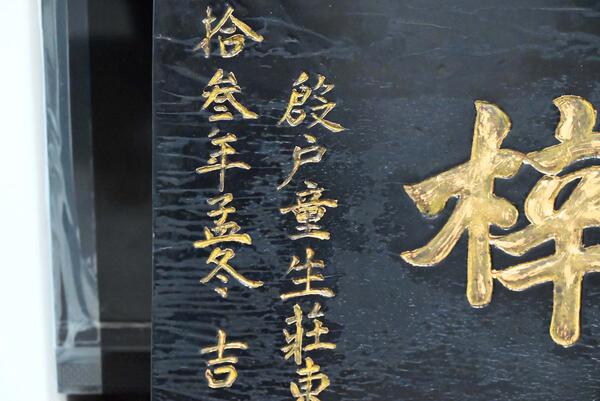 殷户童生莊東
拾叁年孟冬 吉